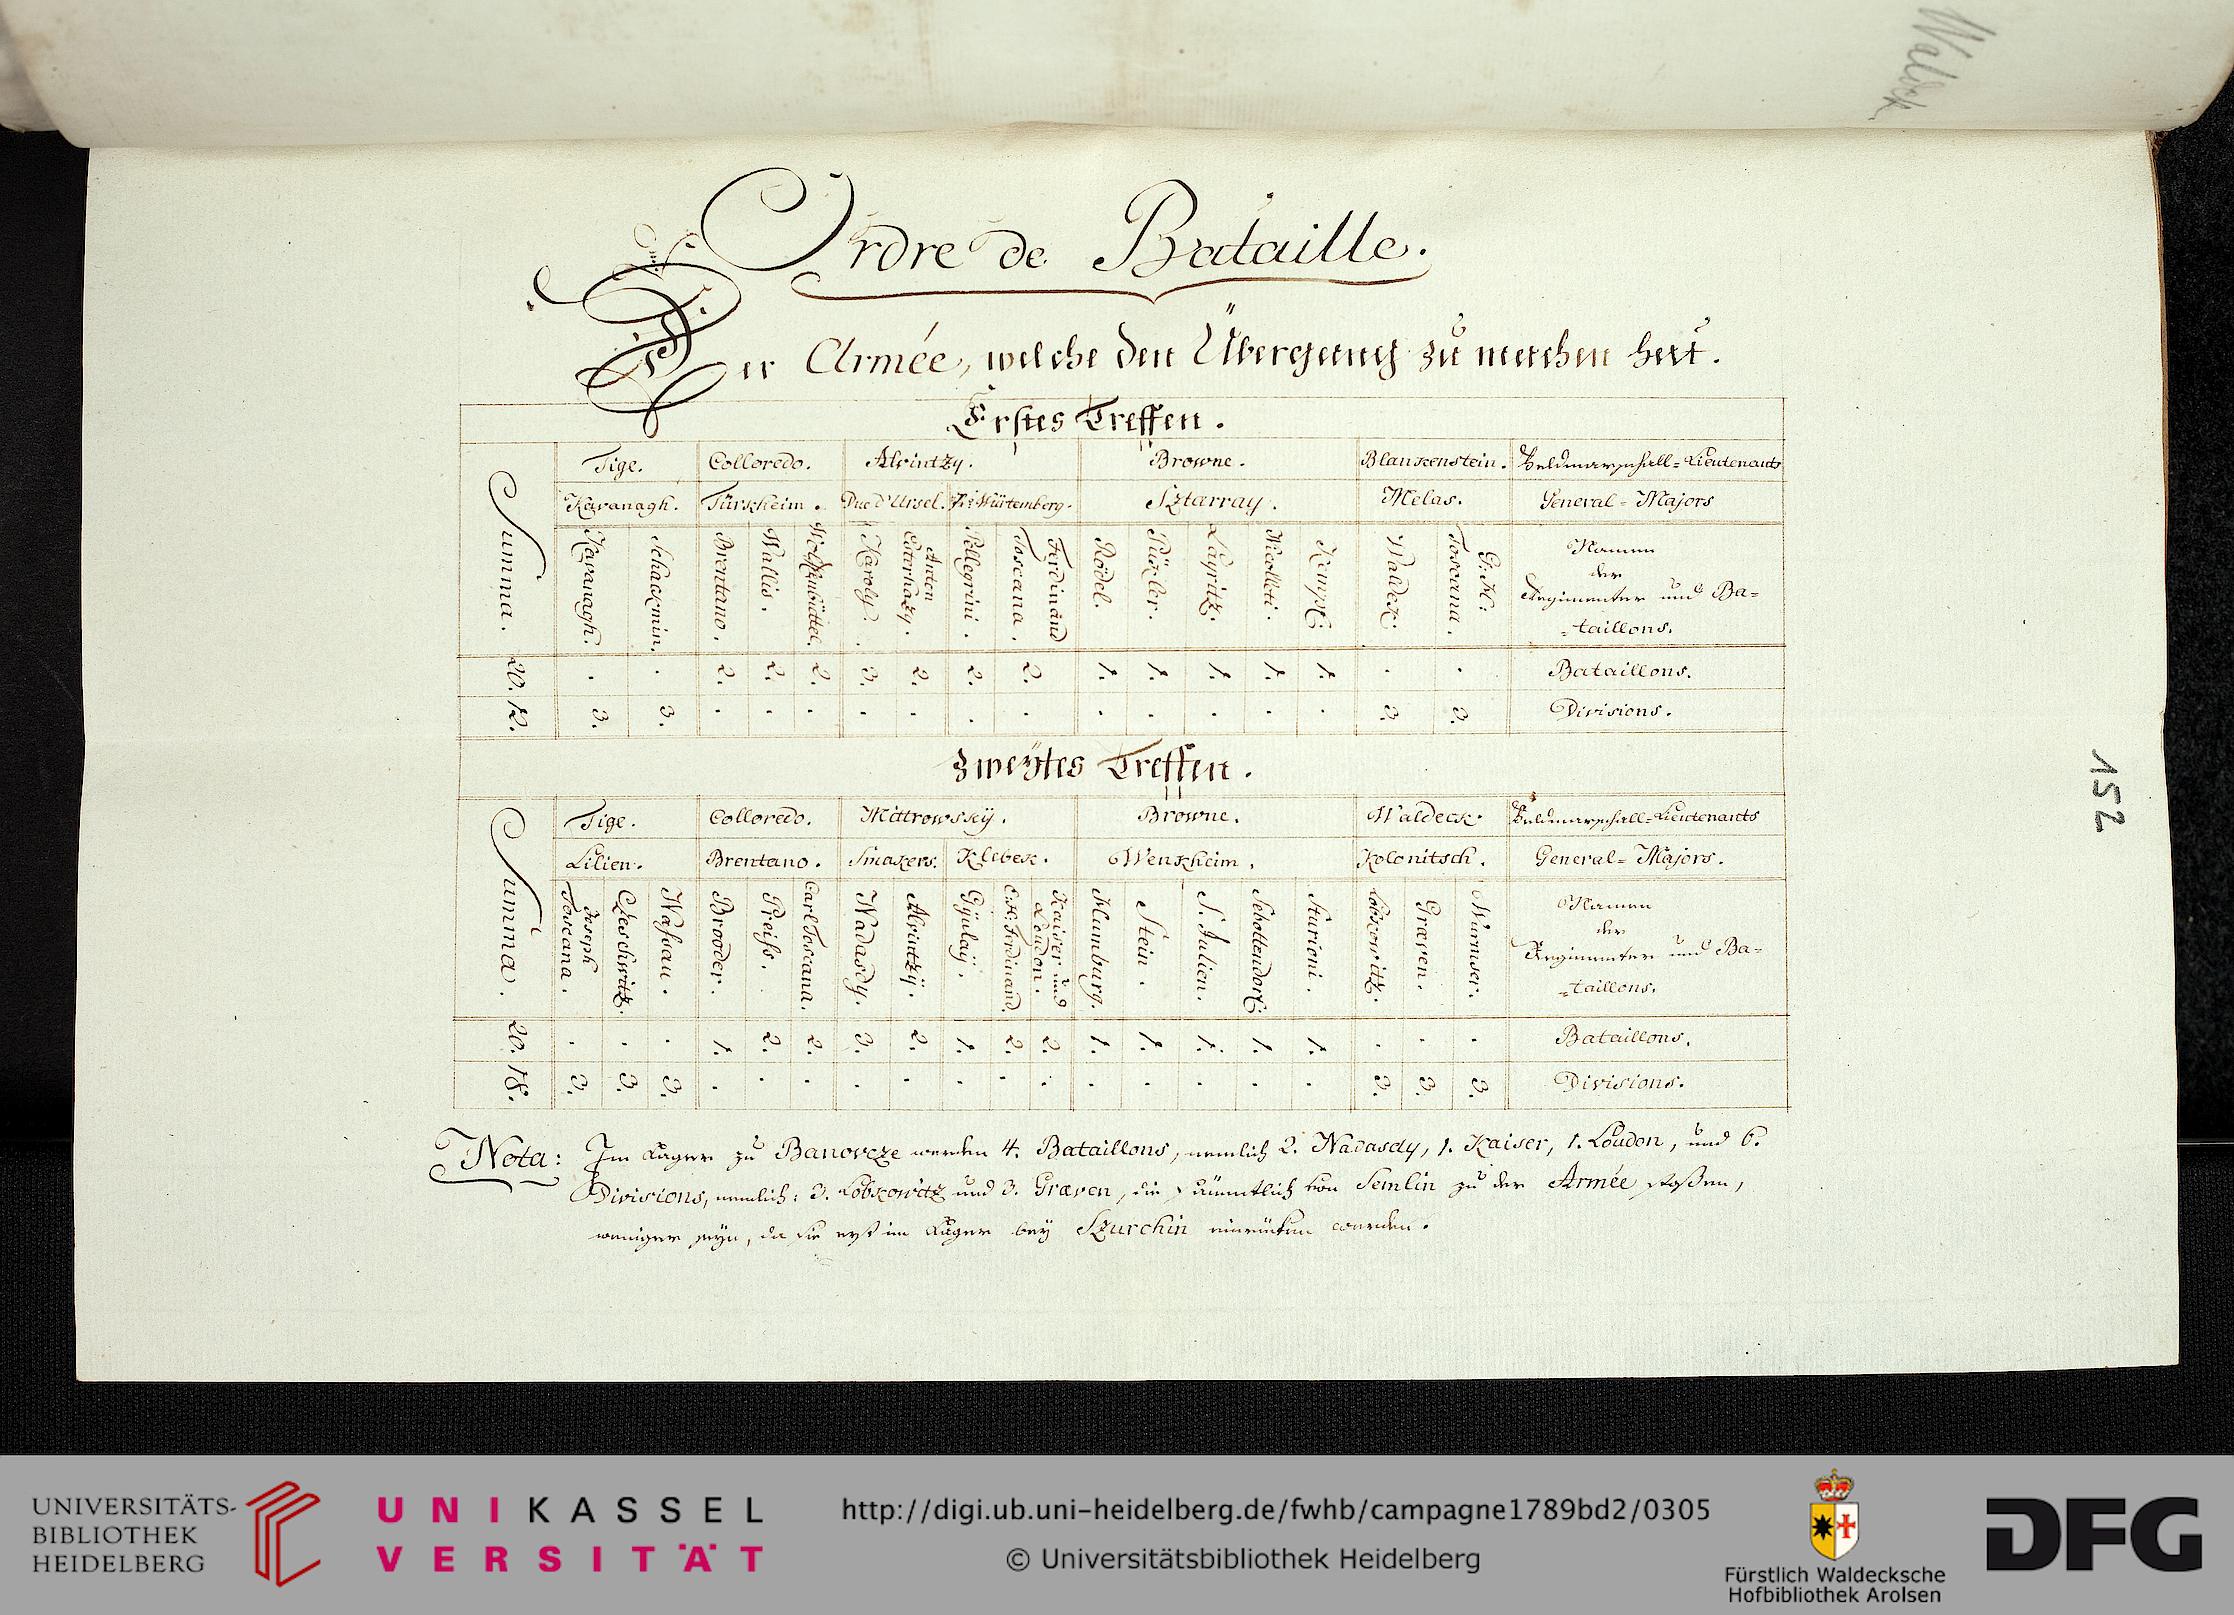 Waldeck
Ordre de Bataille.
Der Armée, welche den Übergang zu machen hat.
Erstes Treffen.
Tige. Colloredo. Alvintzy. Browne. Blankenstein. Feldmarschall-Lieutenants
Kavanagh. Türkheim. Duc d'Ursel. Pr: Würtemberg. Sztarray. Melas. General-Majors
Summa. Kavanagh. Schackmin. Brentano. Wallis. Wolffenbüttel. Karoly. Anton Esterhazy. Pellegrini. Ferdinand Toscana. Rödel. Pükler. Lagritz. Nicolleti. Kempf. Waldek. G: H: Toscana. Namen
der
Regimenter und Ba-
-taillons.
20. . . 2. 2. 2. 3. 2. 2. 2. 1. 1. 1. 1. 1. . . Bataillons.
12. 3. 3. . . . . . . . . . . . . 3. 3. Divisions.
Zweÿtes Treffen.
Tige. Colloredo. Mittrowskÿ. Browne. Waldeck. Feldmarschall-Lieutenants
Lilien. Brentano. Smakers. Klebek. Wenkheim. Kolonitsch. General-Majors.
Summa. Joseph Toscana. Czeschwitz. Naßau. Brooder. Preiss. Carl Toscana. Nadasdy. Alvintzÿ. Gÿulaÿ. E.H: Ferdinand. Kaiser und Loudon. Klumburg. Stein. S. Julien. Sebottendorf. Sturioni. Lobkowitz. Græven. Wurmser. Namen
der
Regimenter und Ba-
-taillons.
20. . . . 1. 2. 2. 3. 2. 1. 2. 2. 1. 1. 1. 1. 1. . . . Bataillons.
18. 3. 3. 3. . . . . . . . . . . . . . 3. 3. 3. Divisions.
Nota: Im Lager zu Banovcze werden 4. Bataillons, nemlich 2. Nadasdy, 1. Kaiser, 1. Loudon, und 6.
Divisions, nemlich: 3. Lobkowitz und 3. Græven, die sämmtlich von Semlin zu der Armée stoßen,
weniger seyn, da sie erst im Lager beÿ Szurchin einrüken werden.
152
UNIVERSITÄTS-
BIBLIOTHEK
HEIDELBERG
UNIKASSEL
VERSITÄT
http://digi.ub.uni-heidelberg.de/fwhb/campagne1789bd2/0305
© Universitätsbibliothek Heidelberg
Fürstlich Waldecksche
Hofbibliothek Arolsen
DFG